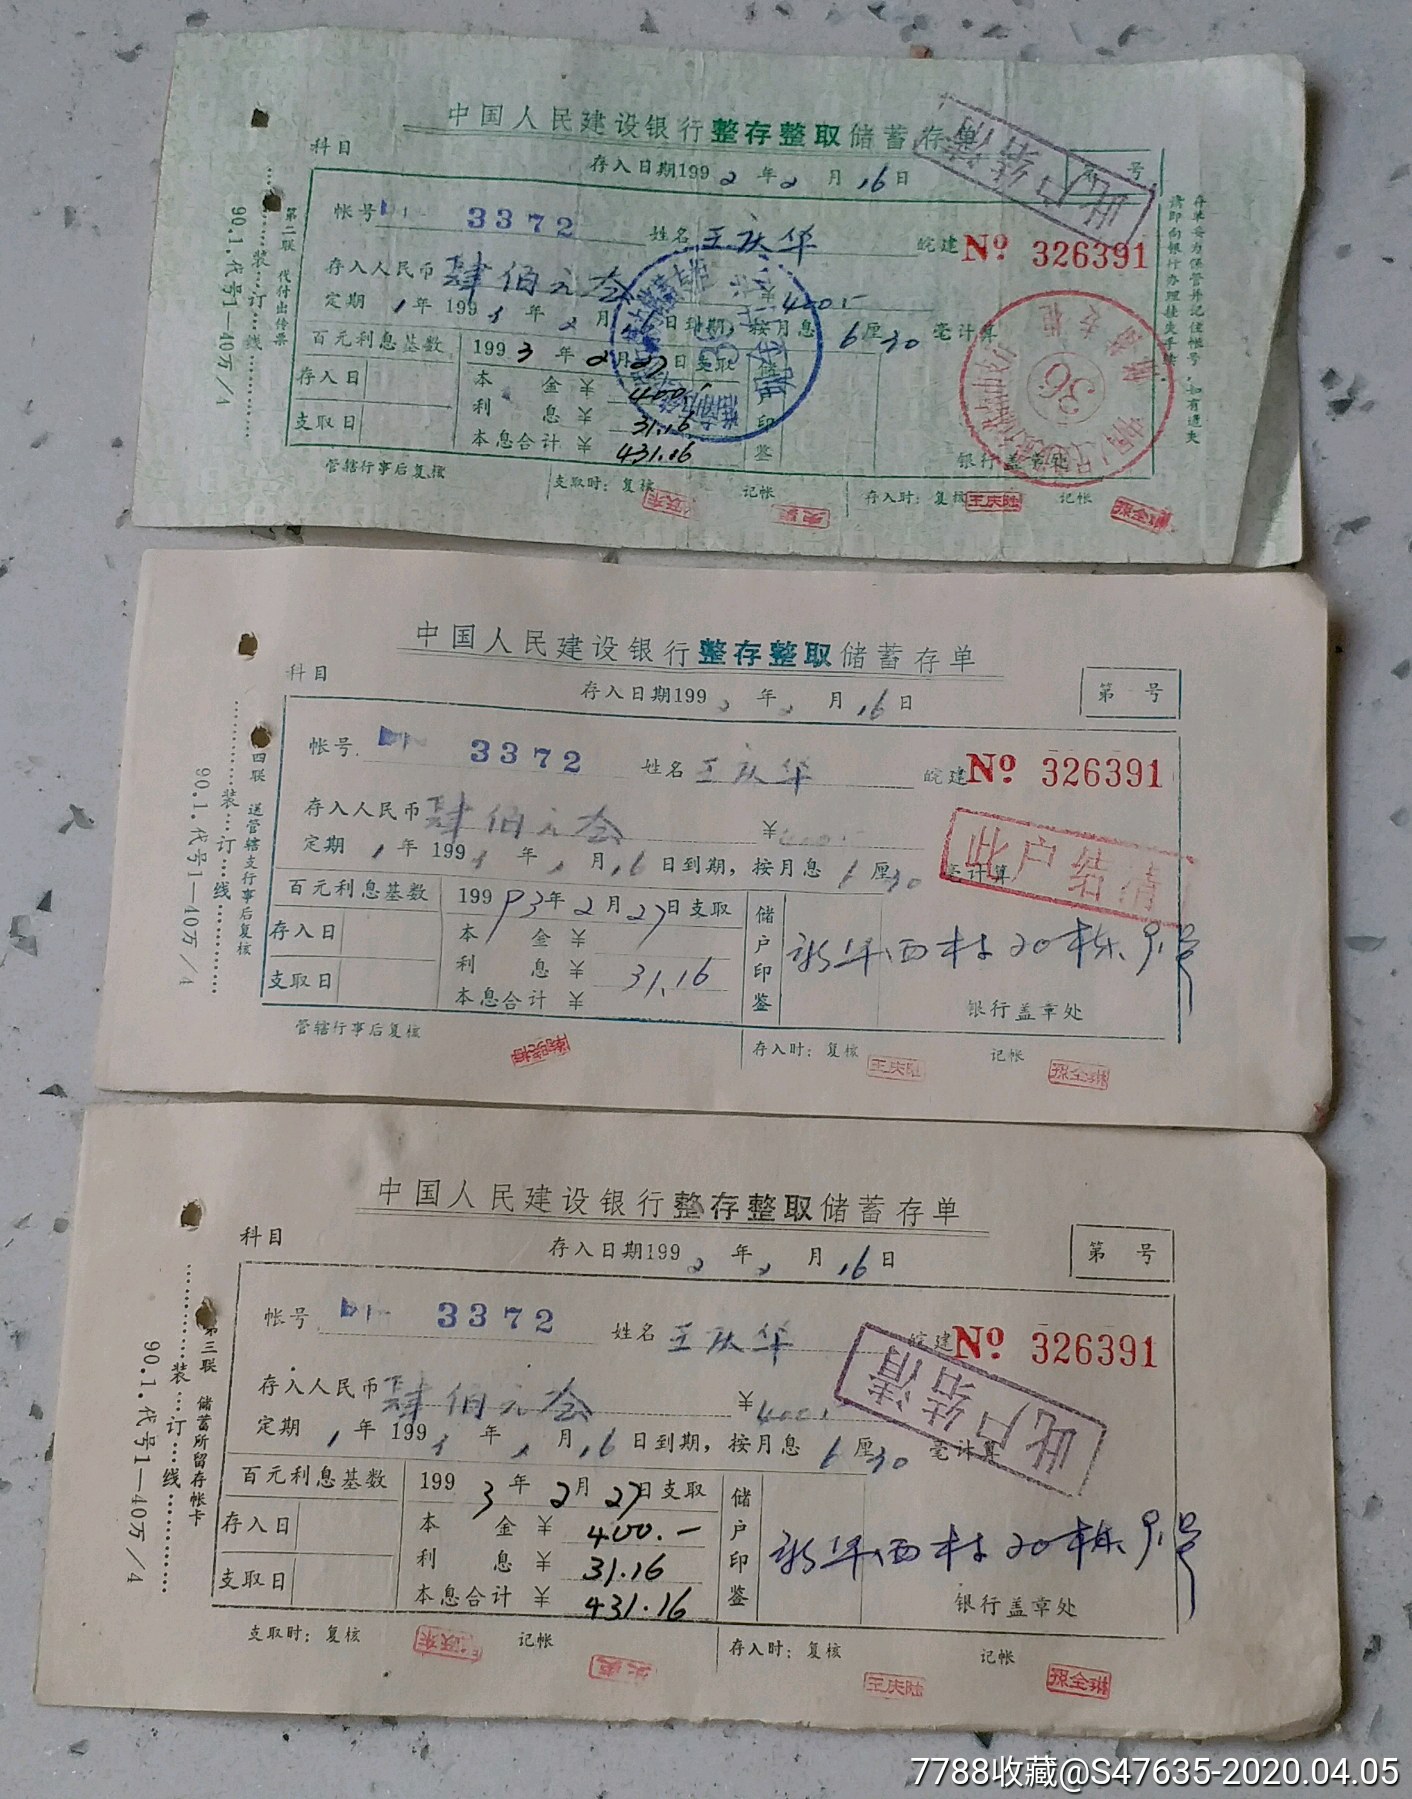 中国人民建设银行整存整取储蓄存单
科目
存入日期1992年2月16日
第 号
此户结清
帐号 3372 姓名 王庆华 皖建 No 326391
存入人民币 肆佰元仝 ¥400.-
定期 1年 1993年2月16日到期,按月息6厘30毫计算
百元利息基数 1993年2月27日支取
存入日 本金¥ 400.-
利息¥ 31.16
支取日
本息合计¥ 431.16
储户印鉴
银行盖章处
管辖行事后复核 支取时:复核 记帐 存入时:复核 王庆陆 记帐 孫全琳
第二联 代付出传票
……装…订…线……
90.1.代号1—40万/4
存单妥为保管并记住帐号,如有遗失
请即向银行办理挂失手续
36
中国人民建设银行整存整取储蓄存单
科目
存入日期1992年2月16日
第 号
帐号 3372 姓名 王庆华 皖建 No 326391
存入人民币 肆佰元仝 ¥400.-
此户结清
定期 1年 1993年2月16日到期,按月息6厘30毫计算
百元利息基数 19993年2月27日支取
存入日 本金¥
利息¥ 31.16
支取日
本息合计¥
储户印鉴
新华西村20栋9号
银行盖章处
管辖行事后复核 存入时:复核 王庆陆 记帐 孫全琳
四联 送管辖支行事后复核
……装…订…线……
90.1.代号1—40万/4
中国人民建设银行整存整取储蓄存单
科目
存入日期1992年2月16日
第 号
帐号 3372 姓名 王庆华 皖建 No 326391
此户结清
存入人民币 肆佰元仝 ¥400.-
定期 1年 1993年2月16日到期,按月息6厘30毫计算
百元利息基数 1993年2月27日支取
存入日 本金¥ 400.-
利息¥ 31.16
支取日
本息合计¥ 431.16
储户印鉴
新华西村20栋9号
银行盖章处
支取时:复核 记帐 存入时:复核 王庆陆 记帐 孫全琳
第三联 储蓄所留存帐卡
……装…订…线……
90.1.代号1—40万/4
7788收藏@S47635-2020.04.05